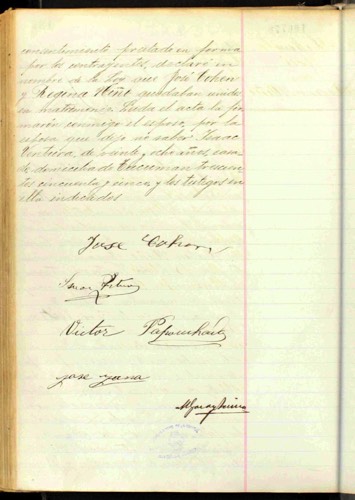 consentimento prestado en forma
por los contrayentes, declaré en
nombre de la ley que José Cohen
y Regina Niño quedaban unidos
en matrimonio. Leida el acta la fir-
maron conmigo el esposo, por la
esposa que dijo no saber Isaac
Ventura, de veinte y ocho años, casa-
do, domiciliado Tucuman
cincuenta y nueve, y los testigos en
ella indicados
José Cohen
Victor
José